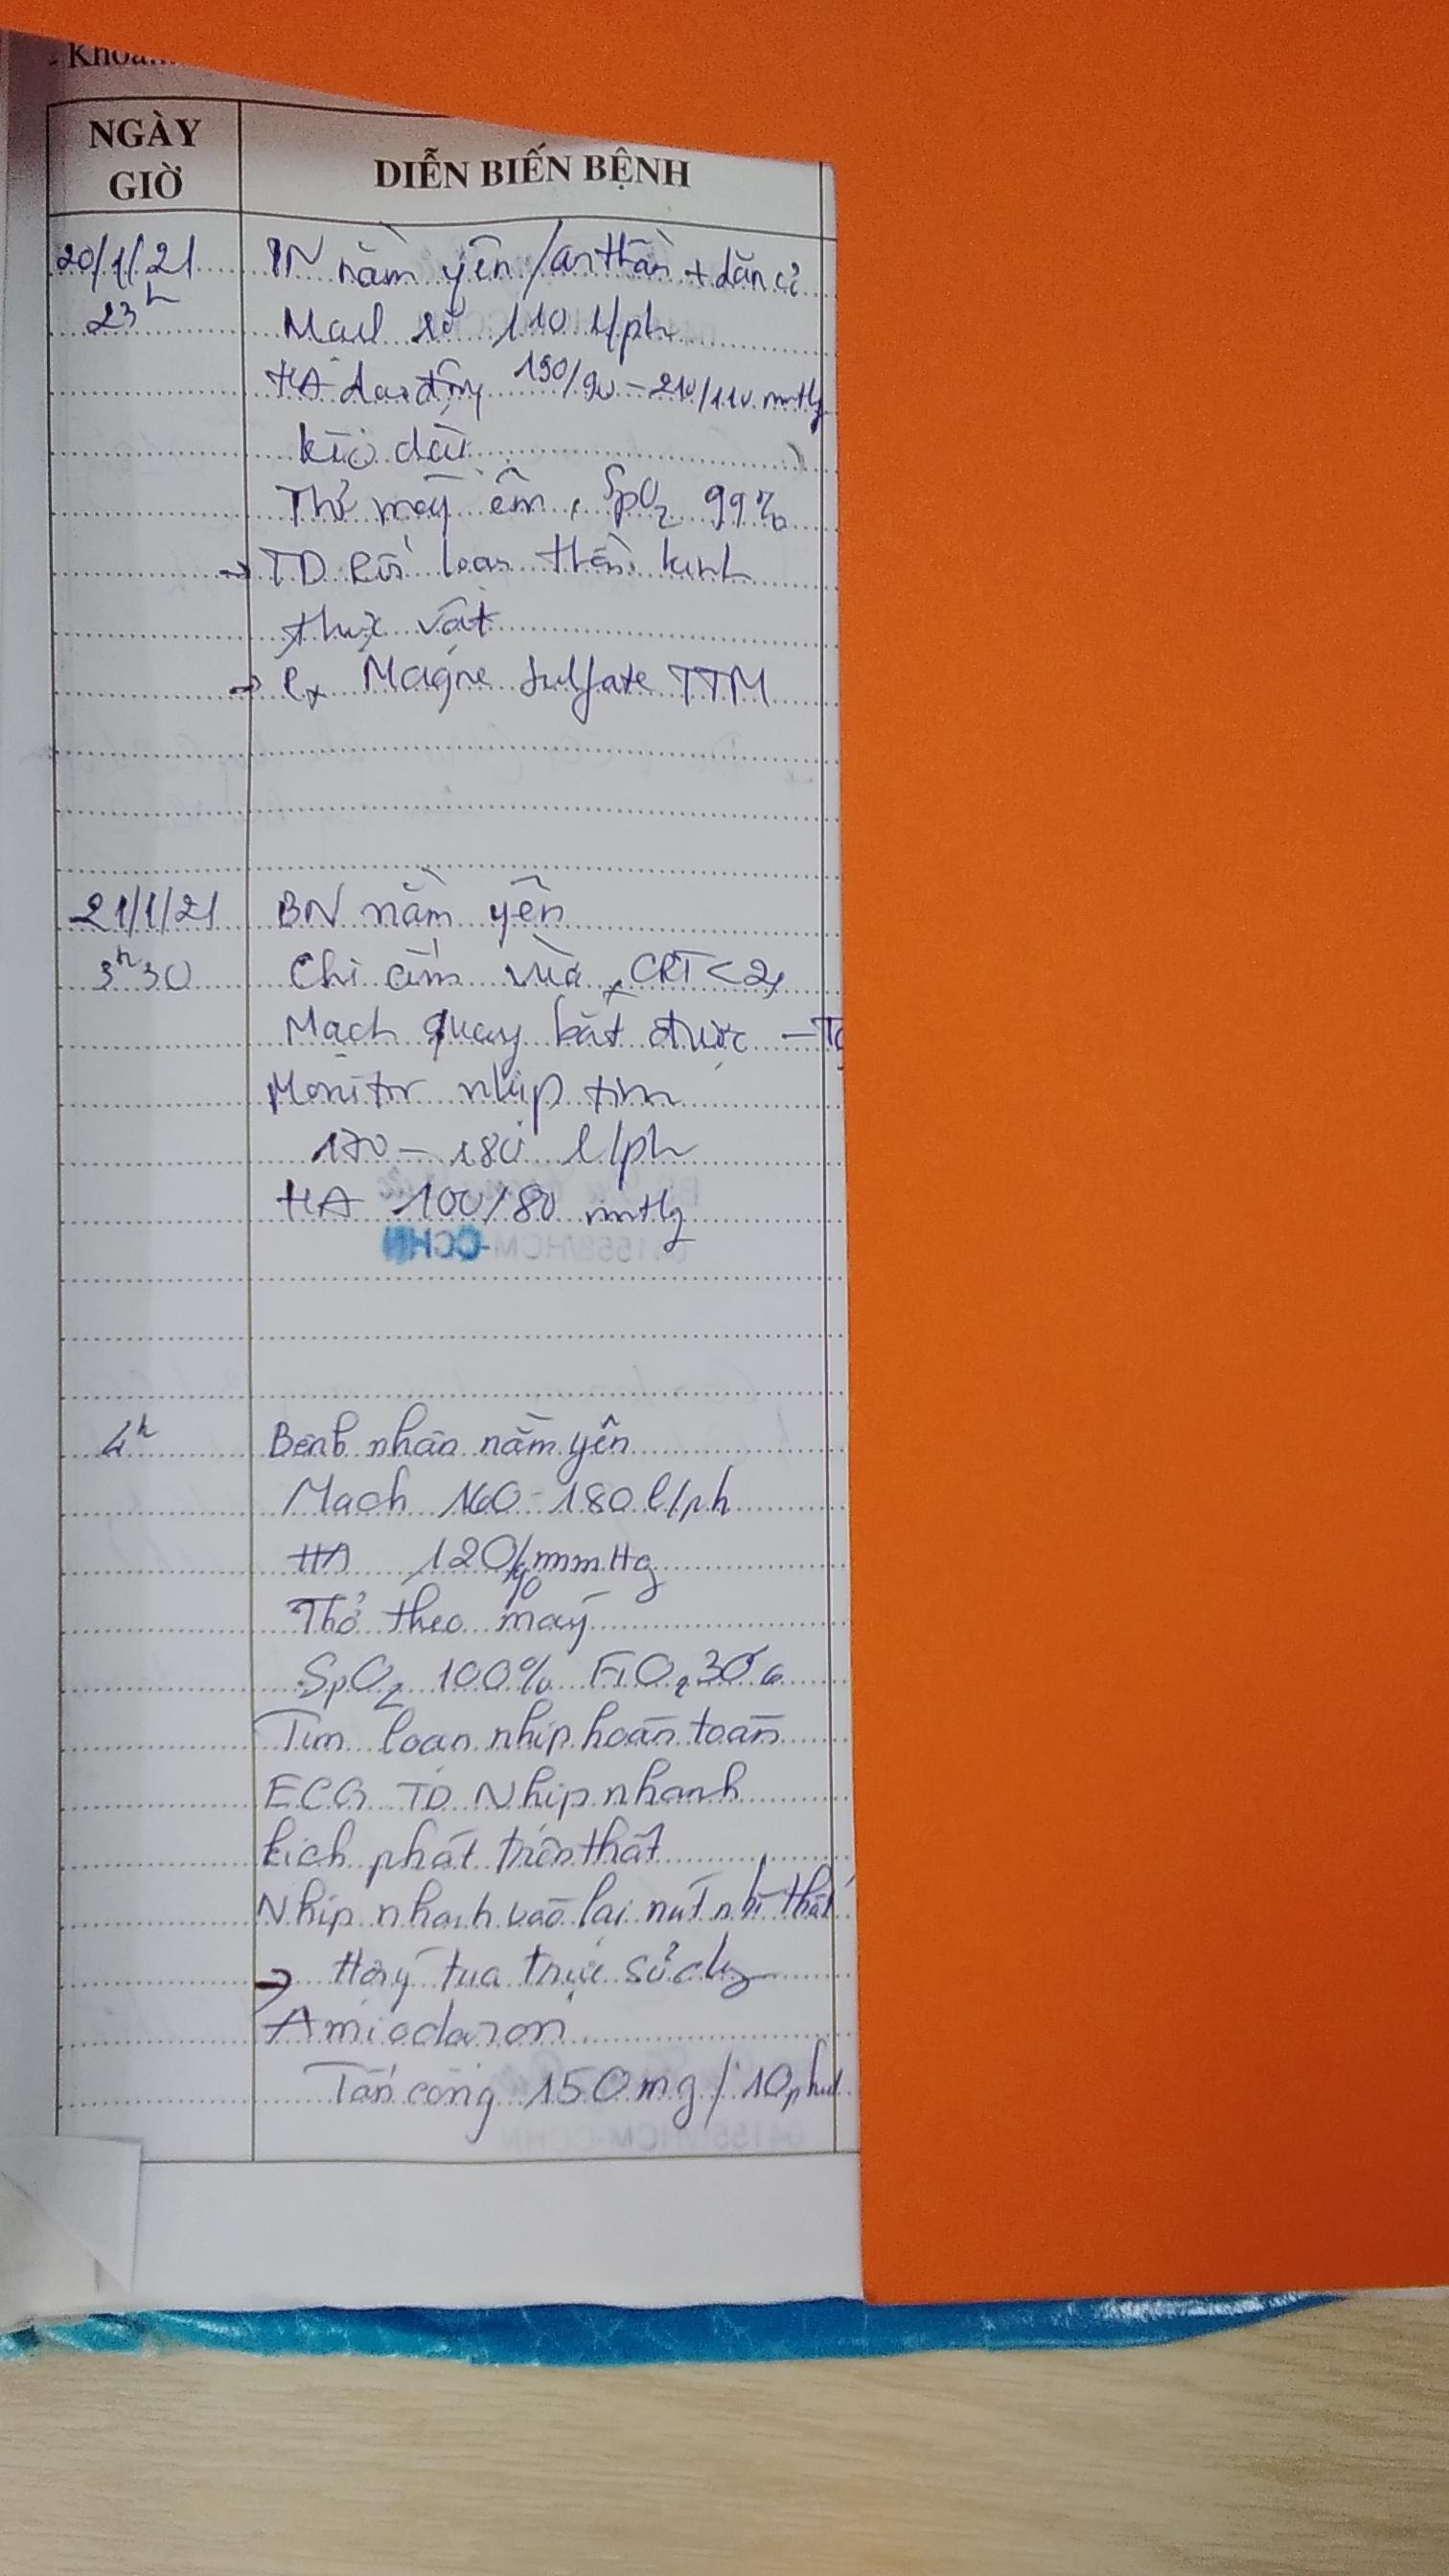 - Khoa...
NGÀY GIỜ
DIỄN BIẾN BỆNH
20/1/21 BN nằm yên / an thần + dãn cơ
23h Mạch số 110 l/ph
HA dao động 190/90 - 210/110 mmHg
kéo dài
Thở máy êm, SpO2 99%
→ TD Rối loạn thần kinh
thực vật
→ Rx Magne Sulfate TTM
21/1/21 BN nằm yên
3h30 Chi ấm vừa, CRT < 2s
Mạch quay bắt được
Monitor nhịp tim
170 - 180 l/ph
HA 100/80 mmHg
4h Bệnh nhân nằm yên
Mạch 160 - 180 l/ph
HA 120/90 mmHg
Thở theo máy
SpO2 100% FiO2 30%
Tim loạn nhịp hoàn toàn
ECG TD Nhịp nhanh
kịch phát trên thất
Nhịp nhanh vào lại nút nhĩ thất
→ Hội ý tua trực sử dụng
Amiodaron
Tấn công 150mg / 10phút